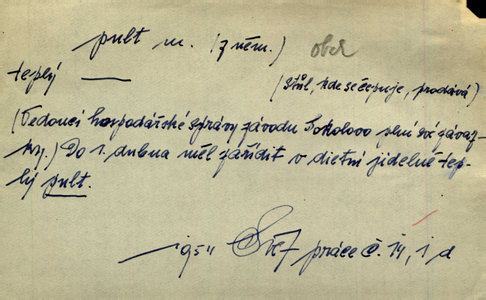 pult m. (z něm.) ober
teplý ——
(stůl, kde se čepuje, prodává)
(Vedoucí hospodářské správy závodu Sokolovo plní své závaz-
ky.) Do 1. dubna měl zařídit v dietní jídelně tep-
lý pult.
1951 práce č. 14, 1 d